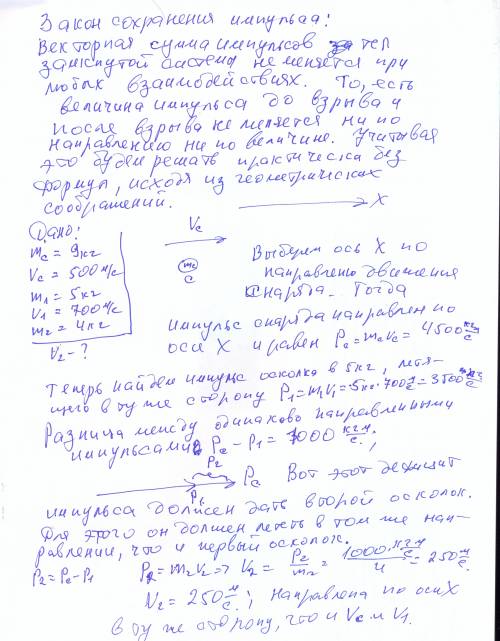 Закон сохранения импульса:
Векторная сумма импульсов тел
замкнутой системы не меняется при
любых взаимодействиях. То, есть
величина импульса до взрыва и
после взрыва не меняется ни по
направлению ни по величине. Учитывая
это будем решать практически без
формул, исходя из геометрических
соображений.
X
Дано:
mc = 9кг
Vc = 500м/с
m1 = 5кг
V1 = 700м/с
m2 = 4кг
V2 - ?
Vc
mc
C
Выберем ось X по
направлению движения
снаряда. Тогда
импульс снаряда направлен по
оси X и равен Pc = mcVc = 4500 кгм/с
Теперь найдем импульс осколка в 5кг, летя-
щего в ту же сторону P1 = m1V1 = 5кг·700м/с = 3500 кгм/с
Разница между одинаково направленными
импульсами Pc - P1 = 1000 кгм/с;
P2
P1
Pc
Вот этот дефицит
импульса должен дать второй осколок.
Для этого он должен лететь в том же нап-
равлении, что и первый осколок.
P2 = Pc - P1
P2 = m2V2 => V2 = P2/m2 = 1000 кгм/с / 4 = 250 м/с
V2 = 250 м/с; Направлена по оси X
в ту же сторону, что и Vc и V1.